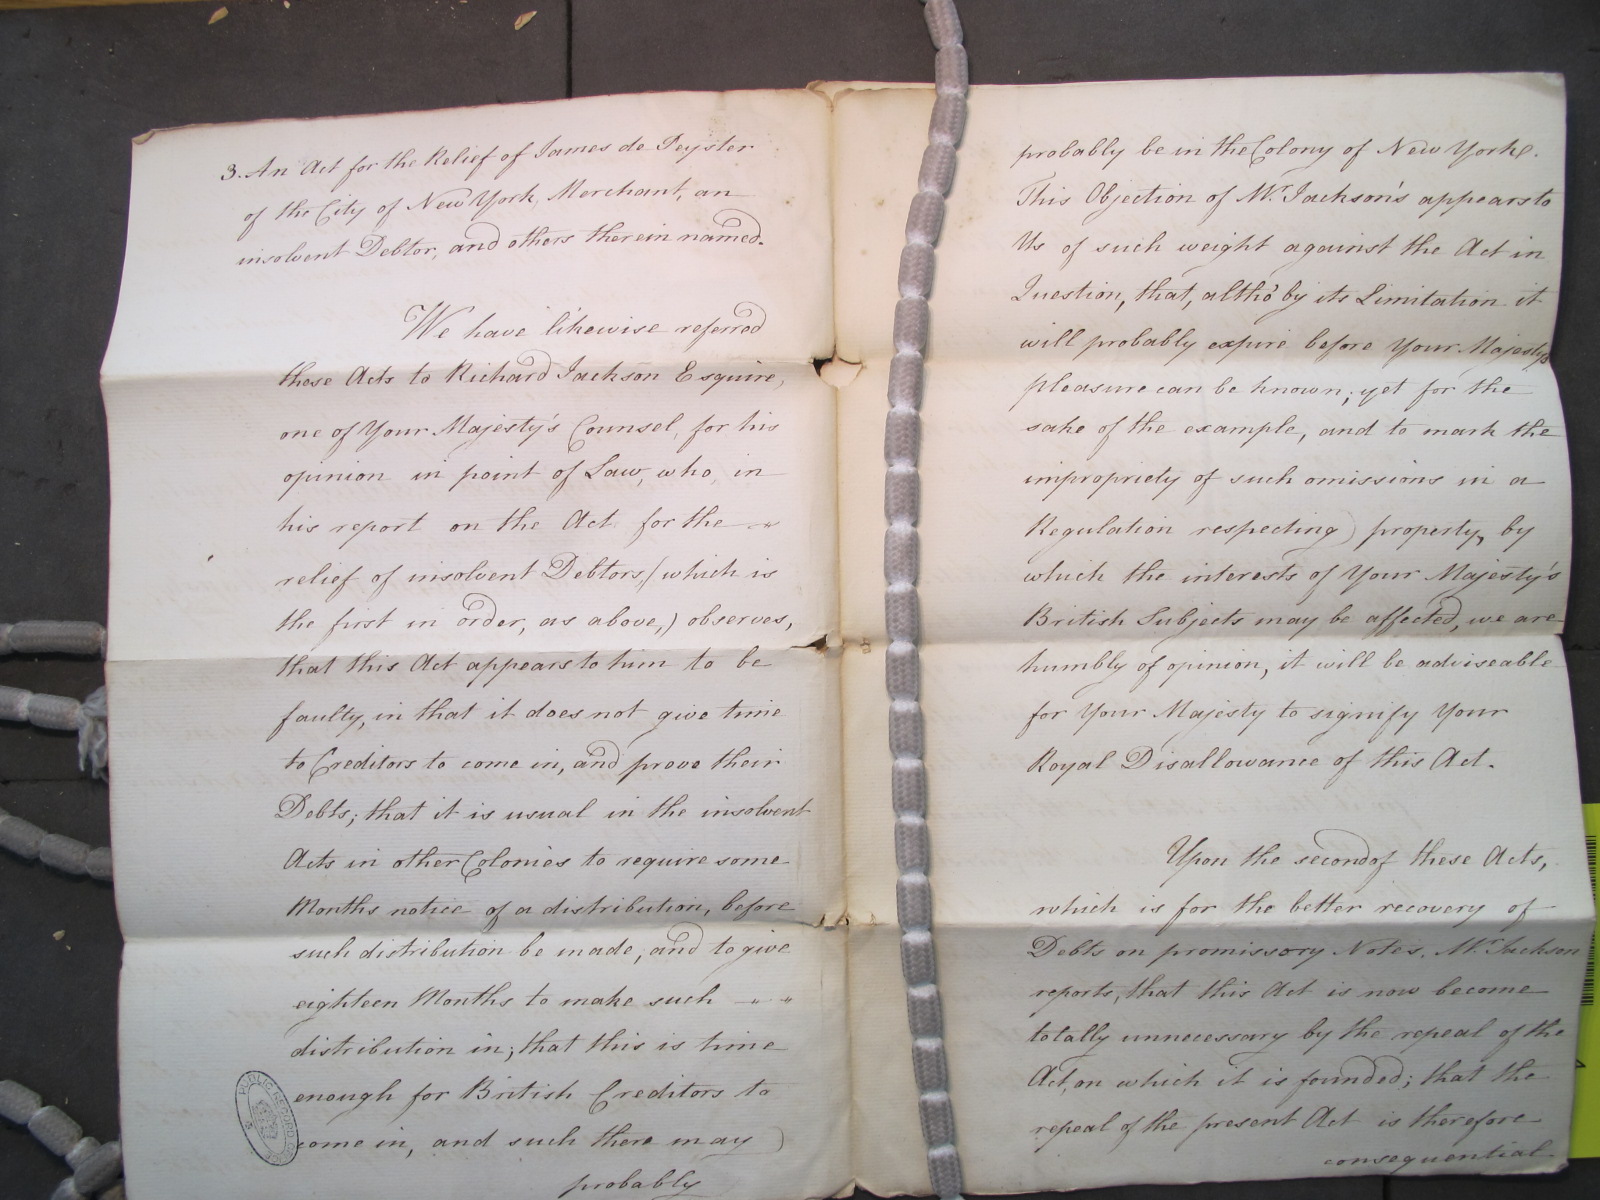 3. An Act for the Relief of James de Peyster
of the City of New York, Merchant, an
insolvent Debtor, and others therein named.
We have likewise referred
those Acts to Richard Jackson Esquire,
one of Your Majesty's Counsel, for his
opinion in point of Law, who, in
his report on the Act for the
relief of insolvent Debtors, (which is
the first in order, as above,) observes,
that this Act appears to him to be
faulty, in that it does not give time
to Creditors to come in, and prove their
Debts; that it is usual in the insolvent
Acts in other Colonies to require some
Months notice of a distribution, before
such distribution be made, and to give
eighteen Months to make such
distribution in; that this is time
enough for British Creditors to
come in, and such there may
probably
PUBLIC RECORD OFFICE
probably be in the Colony of New York.
This Objection of Mr. Jackson's appears to
Us of such weight against the Act in
Question, that, altho' by its Limitation it
will probably expire before Your Majesty's
pleasure can be known; yet for the
sake of the example, and to mark the
impropriety of such omissions in a
Regulation respecting property, by
which the interests of Your Majesty's
British Subjects may be affected, we are
humbly of opinion, it will be adviseable
for Your Majesty to signify Your
Royal Disallowance of this Act.
Upon the second of these Acts,
which is for the better recovery of
Debts on promissory Notes, Mr. Jackson
reports, that this Act is now become
totally unnecessary by the repeal of the
Act, on which it is founded; that the
repeal of the present Act is therefore
consequential